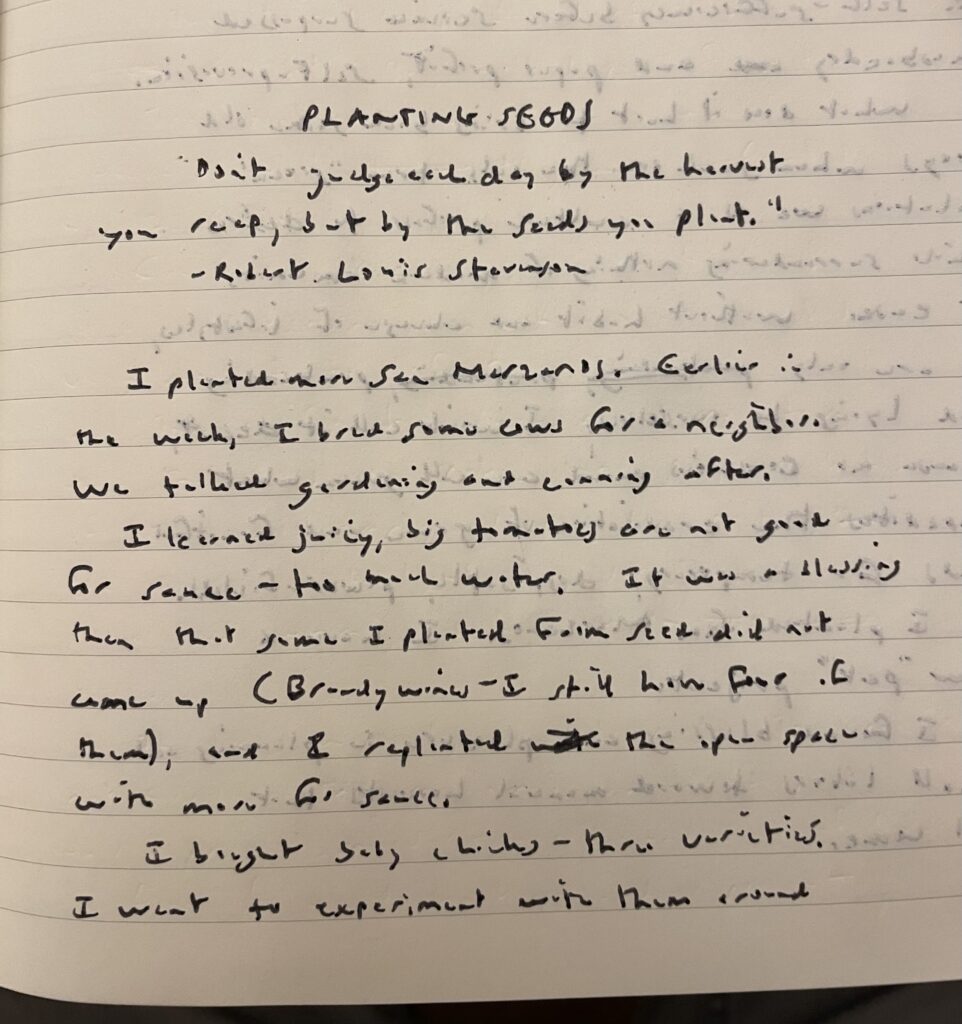 PLANTING SEEDS
"Don't judge each day by the harvest
you reap, but by the seeds you plant."
-Robert Louis Stevenson
I planted more San Marzanos. Earlier in
the week, I bred some cows for a neighbor.
We talked gardening and canning after.
I learned juicy, big tomatoes are not good
for sauce - too much water. It was a blessing
then that some I planted from seed did not
come up (Brandywines - I still have four of
them), and I replanted the open space
with more for sauce.
I bought baby chicks - three varieties.
I want to experiment with them around